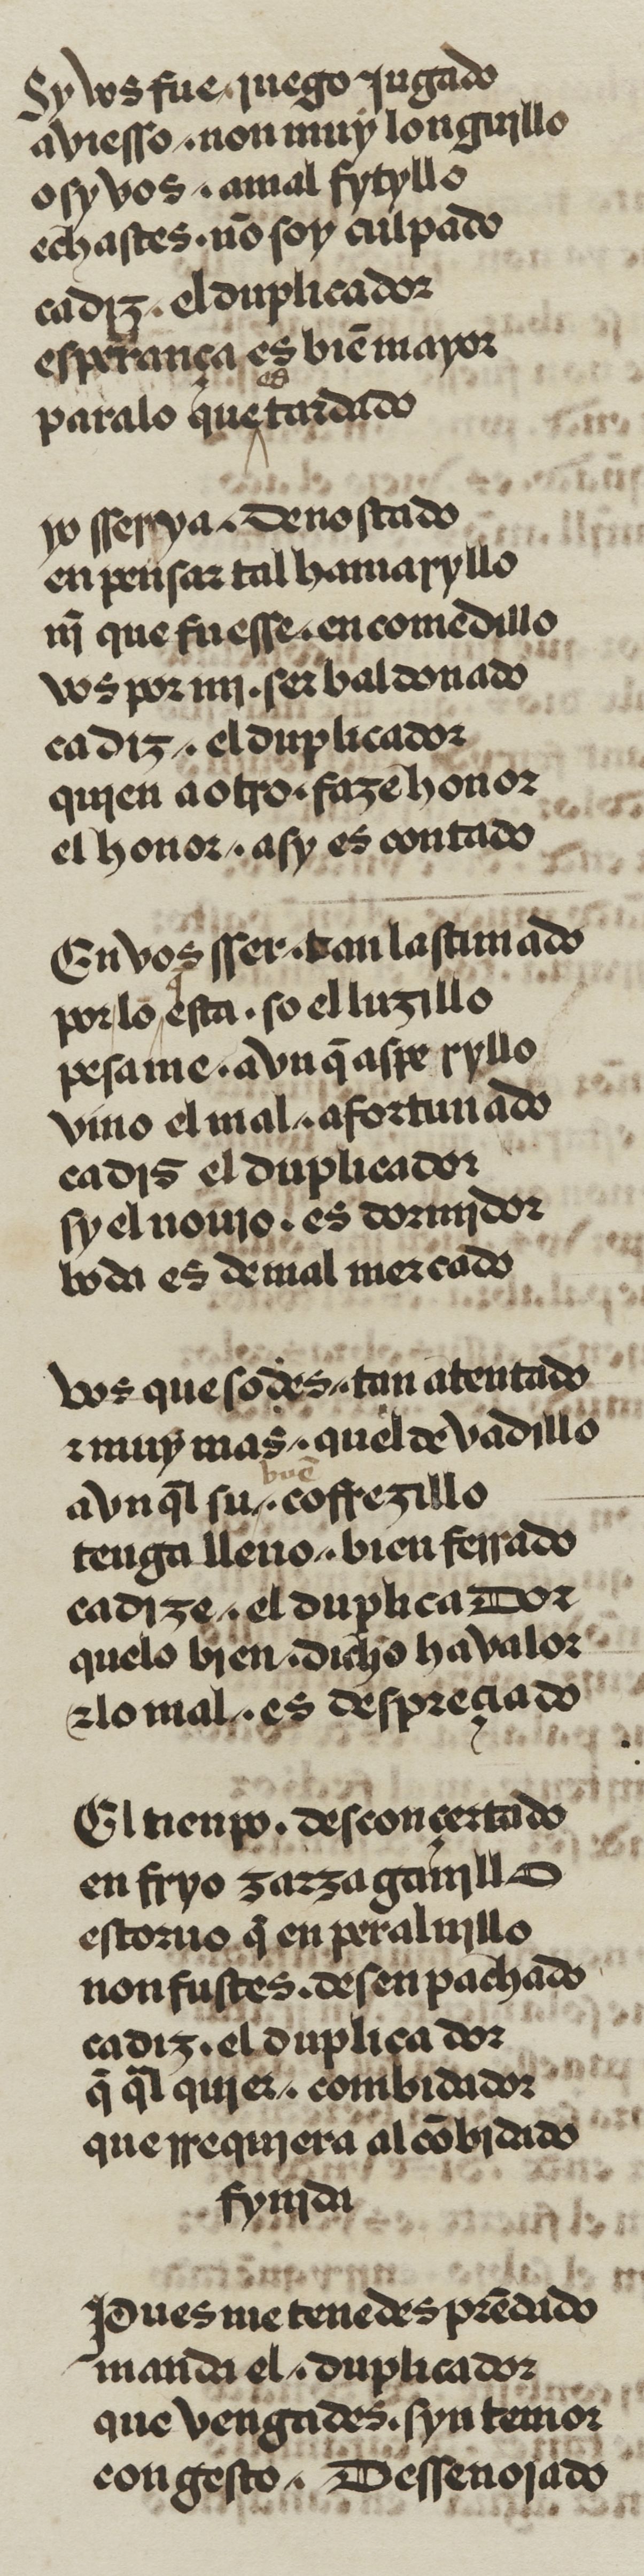 Sy vos fue . juego jugado
aviesso . non muy longuillo
o sy vos . a mal sytyllo
echastes . nõ soy culpado
ca diz . el duplicador
esperança es biẽ mayor
para lo que es tardado

yo sserya . denostado
en pensar tal hamaryllo
nj que fuesse . en comedillo
vos por mj . ser baldonado
ca diz . el duplicador
quien a otro . faze honor
el honor . asy es contado

En vos sser . tan lastimado
por lo q̃ esta . so el luzillo
pesa me . avn q̃ aspe ryllo
vino el mal . afortunado
ca dis el duplicador
sy el nouio . es dormjdor
boda es de mal mercado

Vos que sodes . tan atentado
z muy mas . quel de vadillo
avn q̃l su . buẽ coffrezillo
tenga lleno . bien ferrado
ca dize . el duplicador
que lo bien . dicho ha valor
z lo mal . es despreçiado

El tienpo . desconçertado
en fryo zarzaganjllo
estoruo q̃ en peraluillo
non fustes . desenpachado
ca diz . el duplicador
q̃ q̃l quier . combidador
que rrequiera al cõbidado
fynida

Pues me tenedes prẽdado
manda el . duplicador
que vengades . syn temor
con gesto . Dessenojado